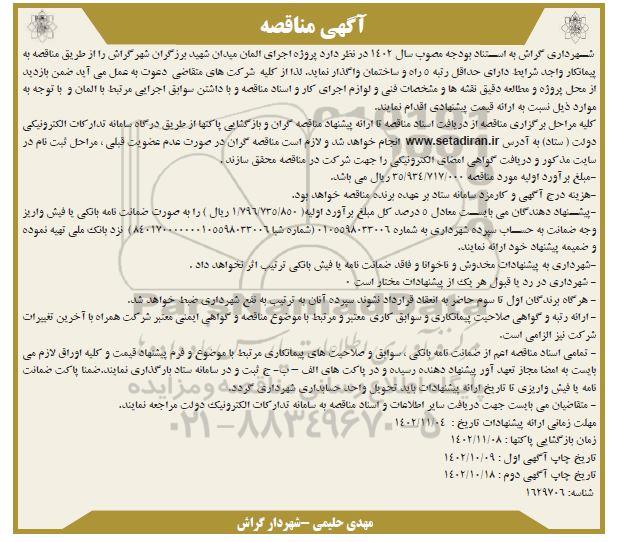 آگهی مناقصه
شهرداری گراش به استناد بودجه مصوب سال ۱۴۰۲ در نظر دارد پروژه اجرای المان میدان شهید برزگران شهر گراش را از طریق مناقصه به
پیمانکار واجد شرایط دارای حداقل رتبه ۵ راه و ساختمان واگذار نماید. لذا از کلیه شرکت های متقاضی دعوت به عمل می آید ضمن بازدید
از محل پروژه و مطالعه دقیق نقشه ها و مشخصات فنی و لوازم اجرای کار و اسناد مناقصه و با داشتن سوابق اجرایی مرتبط با المان و با توجه به
موارد ذیل نسبت به ارائه قیمت پیشنهادی اقدام نمایند.
کلیه مراحل برگزاری مناقصه از دریافت اسناد مناقصه تا ارائه پیشنهاد مناقصه گران و بازگشایی پاکتها از طریق درگاه سامانه تدارکات الکترونیکی
دولت ( ستاد) به آدرس www.setadiran.ir انجام خواهد شد و لازم است مناقصه گران در صورت عدم عضویت قبلی ، مراحل ثبت نام در
سایت مذکور و دریافت گواهی امضای الکترونیکی را جهت شرکت در مناقصه محقق سازند .
-مبلغ برآورد اولیه مورد مناقصه ۳۵/۹۳۴/۷۱۷/۰۰۰ ریال می باشد.
-هزینه درج آگهی و کارمزد سامانه ستاد بر عهده برنده مناقصه خواهد بود.
-پیشنهاد دهندگان می بایست معادل ۵ درصد کل مبلغ برآورد اولیه( ۱/۷۹۶/۷۳۵/۸۵۰ ریال ) را به صورت ضمانت نامه بانکی یا فیش واریز
وجه ضمانت به حساب سپرده شهرداری به شماره ۰۱۰۵۵۹۸۰۳۳۰۰۶ (شماره شبا ۸۴۰۱۷۰۰۰۰۰۰۰۱۰۵۵۹۸۰۳۳۰۰۶ ) نزد بانک ملی تهیه نموده
و ضمیمه پیشنهاد خود ارائه نمایند.
-شهرداری به پیشنهادات مخدوش و ناخوانا و فاقد ضمانت نامه یا فیش بانکی ترتیب اثر نخواهد داد .
- شهرداری در رد یا قبول هر یک از پیشنهادات مختار است .
- هرگاه برندگان اول تا سوم حاضر به انعقاد قرارداد نشوند سپرده آنان به ترتیب به نفع شهرداری ضبط خواهد شد.
- ارائه رتبه و گواهی صلاحیت پیمانکاری و سوابق کاری معتبر و مرتبط با موضوع مناقصه و گواهی ایمنی معتبر شرکت همراه با آخرین تغییرات
شرکت نیز الزامی است.
- تمامی اسناد مناقصه اعم از ضمانت نامه بانکی ، سوابق و صلاحیت های پیمانکاری مرتبط با موضوع و فرم پیشنهاد قیمت و کلیه اوراق لازم می
بایست به امضا مجاز تعهد آور پیشنهاد دهنده رسیده و در پاکت های الف – ب- ج ثبت و در سامانه ستاد بارگذاری نمایند.ضمنا پاکت ضمانت
نامه یا فیش واریزی تا تاریخ ارائه پیشنهادات باید تحویل واحد حسابداری شهرداری گردد.
- متقاضیان می بایست جهت دریافت سایر اطلاعات و اسناد مناقصه به سامانه تدارکات الکترونیک دولت مراجعه نمایند.
مهلت زمانی ارائه پیشنهادات تاریخ : ۱۴۰۲/۱۱/۰۴
زمان بازگشایی پاکتها : ۱۴۰۲/۱۱/۰۸
تاریخ چاپ آگهی اول : ۱۴۰۲/۱۰/۰۹
تاریخ چاپ آگهی دوم : ۱۴۰۲/۱۰/۱۸
شناسه: ۱۶۲۹۷۰۶
۰۲۱-۸۸۳۴۹۶۷۰-۵
مهدی حلیمی -شهردار گراش